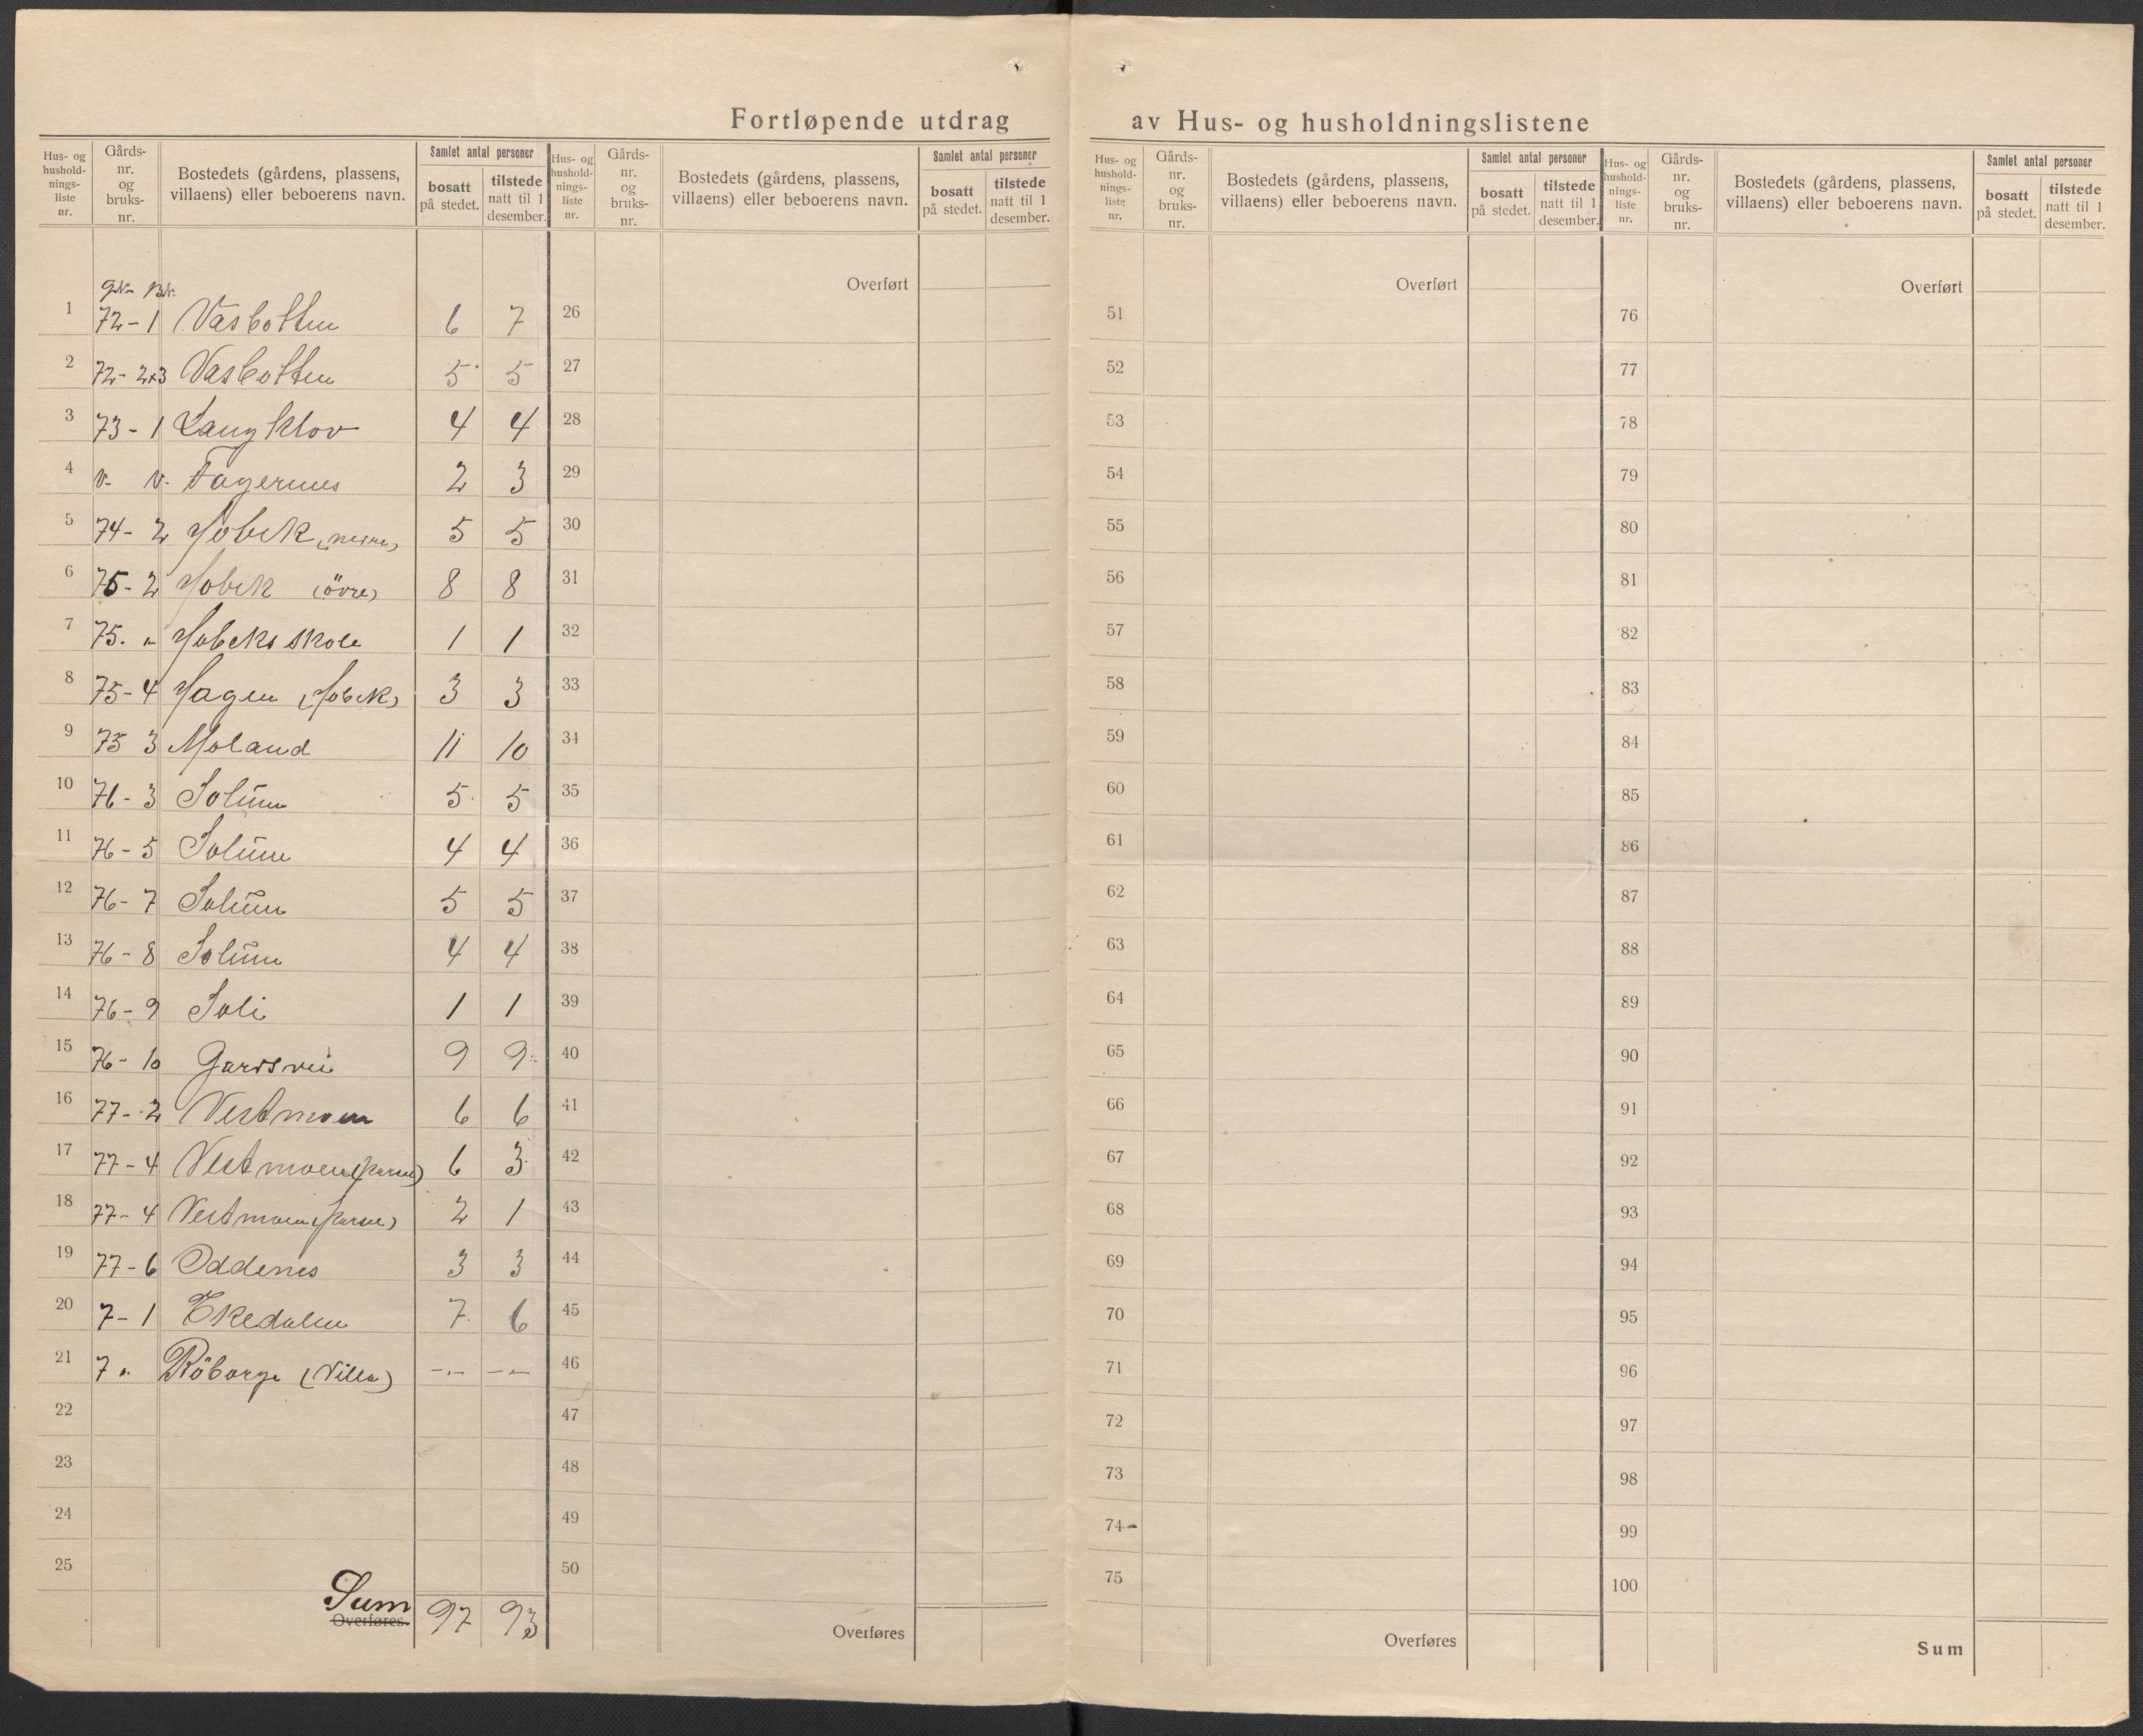 Fortløpende utdrag av Hus- og husholdningslistene
Hus- og hushold- nings- liste nr. | Gårds- nr. og bruks- nr. | Bostedets (gårdens, plassens, villaens) eller beboerens navn. | Samlet antal personer | bosatt på stedet. | tilstede natt til 1 desember.
Hus- og hushold- nings- liste nr. | Gårds- nr. og bruks- nr. | Bostedets (gårdens, plassens, villaens) eller beboerens navn. | Samlet antal personer | bosatt på stedet. | tilstede natt til 1 desember.
Hus- og hushold- nings- liste nr. | Gårds- nr. og bruks- nr. | Bostedets (gårdens, plassens, villaens) eller beboerens navn. | Samlet antal personer | bosatt på stedet. | tilstede natt til 1 desember.
Hus- og hushold- nings- liste nr. | Gårds- nr. og bruks- nr. | Bostedets (gårdens, plassens, villaens) eller beboerens navn. | Samlet antal personer | bosatt på stedet. | tilstede natt til 1 desember.
Overført Overført Overført
1 72-1 Vasbotten 6 7 26 51 76
2 72-2+3 Vasbotten 5 5 27 52 77
3 73-1 Langklov 4 4 28 53 78
4 Fagernes 2 3 29 54 79
5 74-2 Hobek (nerre) 5 5 30 55 80
6 75-2 Hobek (övre) 8 8 31 56 81
7 75. " Hobeks skole 1 1 32 57 82
8 75-4 Hagen (Hobek) 3 3 33 58 83
9 75 3 Moland 11 10 34 59 84
10 76-3 Solum 5 5 35 60 85
11 76-5 Solum 4 4 36 61 86
12 76-7 Solum 5 5 37 62 87
13 76-8 Solum 4 4 38 63 88
14 76-9 Soli 1 1 39 64 89
15 76-10 9 9 40 65 90
16 77-2 Vestmoen 6 6 41 66 91
17 77-4 Vestmoen 6 3 42 67 92
18 77-4 Vestmoen 2 1 43 68 93
19 77-6 Oddenes 3 3 44 69 94
20 7-1 Ekedalen 7 6 45 70 95
21 7 " Röborge (Villa) -"- -"- 46 71 96
22 47 72 97
23 48 73 98
24 49 74 99
25 50 75 100
Sum 97 93
Overføres. Overføres Overføres Sum